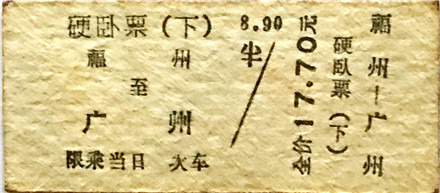 硬卧票(下)
福州
至
广州
限乘当日 火车
8.90
半
全价17.70元
硬卧票(下)
福州—广州